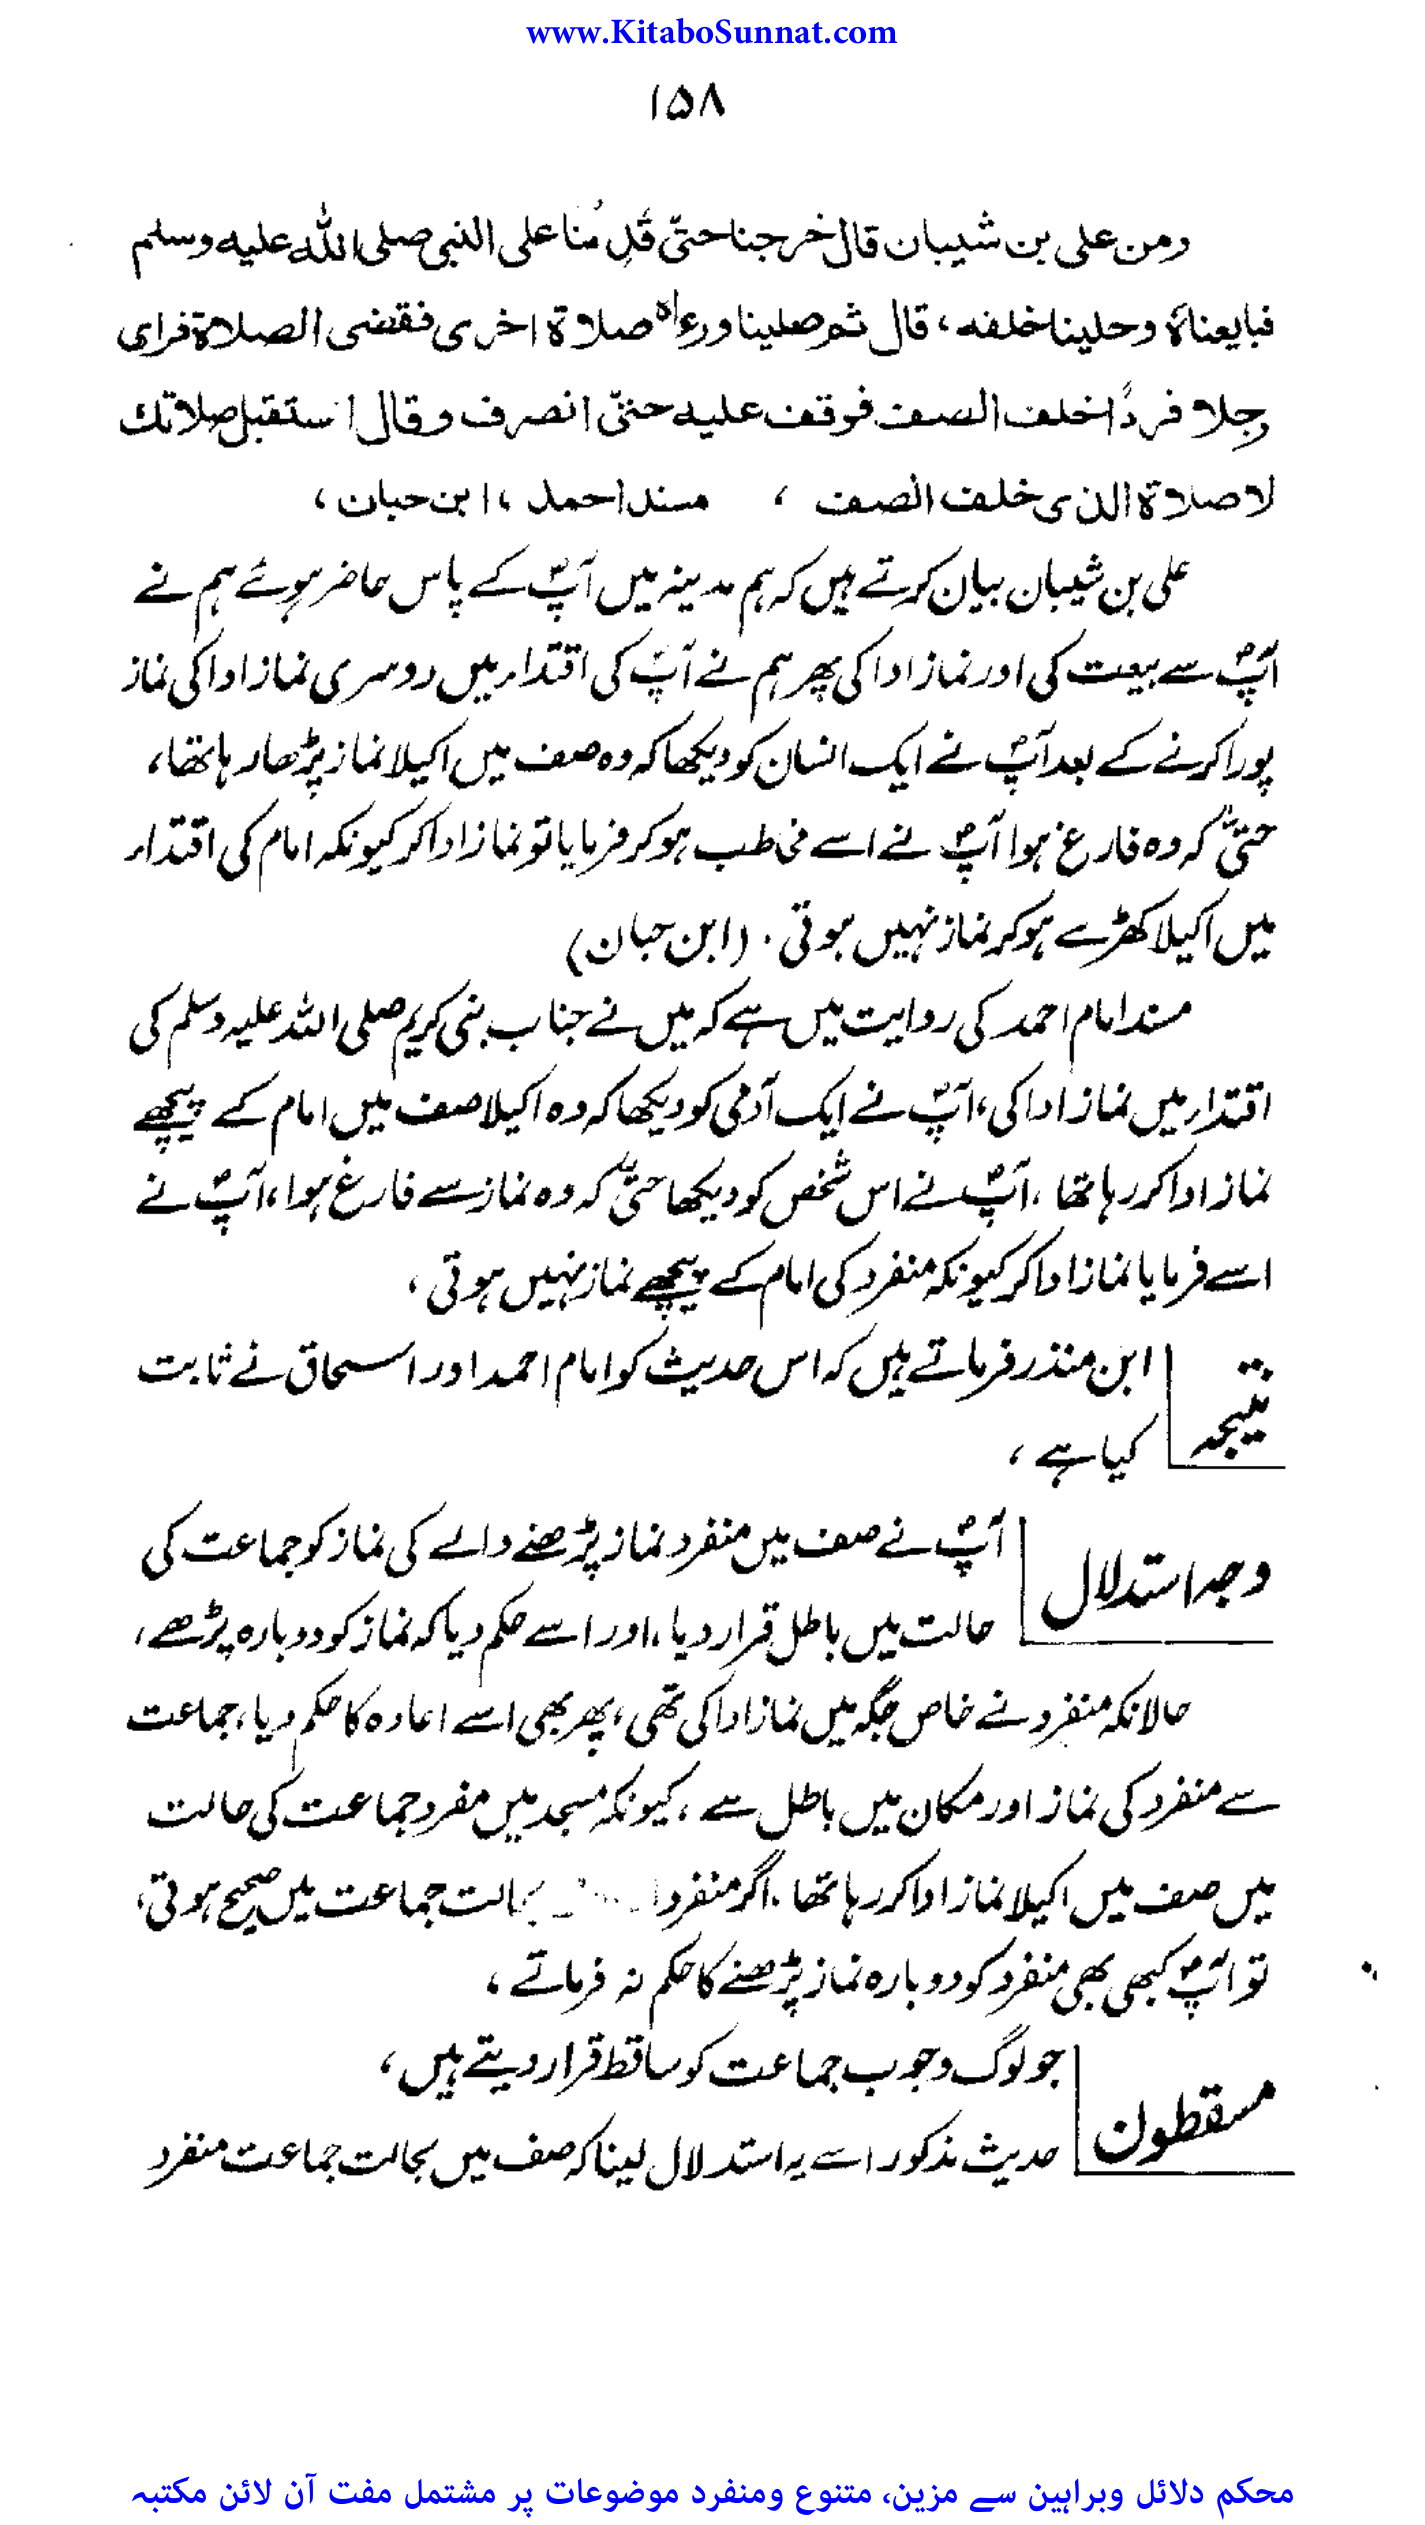 www.KitaboSunnat.com
۱۵۸
ومن علی بن شیبان قال خرجنا حتّی قَدِمُنا علی النبی صلی اللّٰه علیه وسلم
فبایعناہ وحلینا خلفه، قال ثم صلینا وراءہ صلاة اخری فقضی الصلاة فرای
رجلا فردًا خلف الصف فوقف علیه حتّی انصرف وقال استقبل صلاتك
لا صلاة الذی خلف الصف ، مسند احمد ، ابن حبان ،
علی بن شیبان بیان کرتے ہیں کہ ہم مدینہ میں آپؐ کے پاس حاضر ہوئے ہم نے
آپؐ سے بیعت کی اور نماز ادا کی پھر ہم نے آپؐ کی اقتدار میں دوسری نماز ادا کی نماز
پورا کرنے کے بعد آپؐ نے ایک انسان کو دیکھا کہ وہ صف میں اکیلا نماز پڑھا رہا تھا،
حتیٰ کہ وہ فارغ ہوا آپؐ نے اسے مخاطب ہو کر فرمایا تو نماز ادا کر کیونکہ امام کی اقتدار
میں اکیلا کھڑے ہو کر نماز نہیں ہوتی ۔ (ابن حبان)
مسند امام احمد کی روایت میں ہے کہ میں نے جناب بنی کریم صلی اللہ علیہ وسلم کی
اقتدار میں نماز ادا کی، آپؐ نے ایک آدمی کو دیکھا کہ وہ اکیلا صف میں امام کے پیچھے
نماز ادا کر رہا تھا ، آپؐ نے اس شخص کو دیکھا حتیٰ کہ وہ نماز سے فارغ ہوا، آپؐ نے
اسے فرمایا نماز ادا کر کیونکہ منفرد کی امام کے پیچھے نماز نہیں ہوتی ،
نتیجہ ابن منذر فرماتے ہیں کہ اس حدیث کو امام احمد اور اسحاق نے ثابت
کیا ہے ،
وجہ استدلال آپؐ نے صف میں منفرد نماز پڑھنے والے کی نماز کو جماعت کی
حالت میں باطل قرار دیا ، اور اسے حکم دیا کہ نماز کو دوبارہ پڑھے ،
حالانکہ منفرد نے خاص جگہ میں نماز ادا کی تھی ، پھر بھی اسے اعادہ کا حکم دیا ، جماعت
سے منفرد کی نماز اور مکان میں باطل سے ، کیونکہ مسجد میں مفرد جماعت کی حالت
میں صف میں اکیلا نماز ادا کر رہا تھا . اگر منفرد بحالت جماعت میں صحیح ہوتی ،
تو آپؐ کبھی بھی منفرد کو دوبارہ نماز پڑھنے کا حکم نہ فرماتے ،
مسقطون جو لوگ وجوب جماعت کو ساقط قرار دیتے ہیں ،
حدیث مذکور اسے یہ استدلال لینا کہ صف میں بحالت جماعت منفرد
محکم دلائل وبراہین سے مزین، متنوع ومنفرد موضوعات پر مشتمل مفت آن لائن مکتبہ